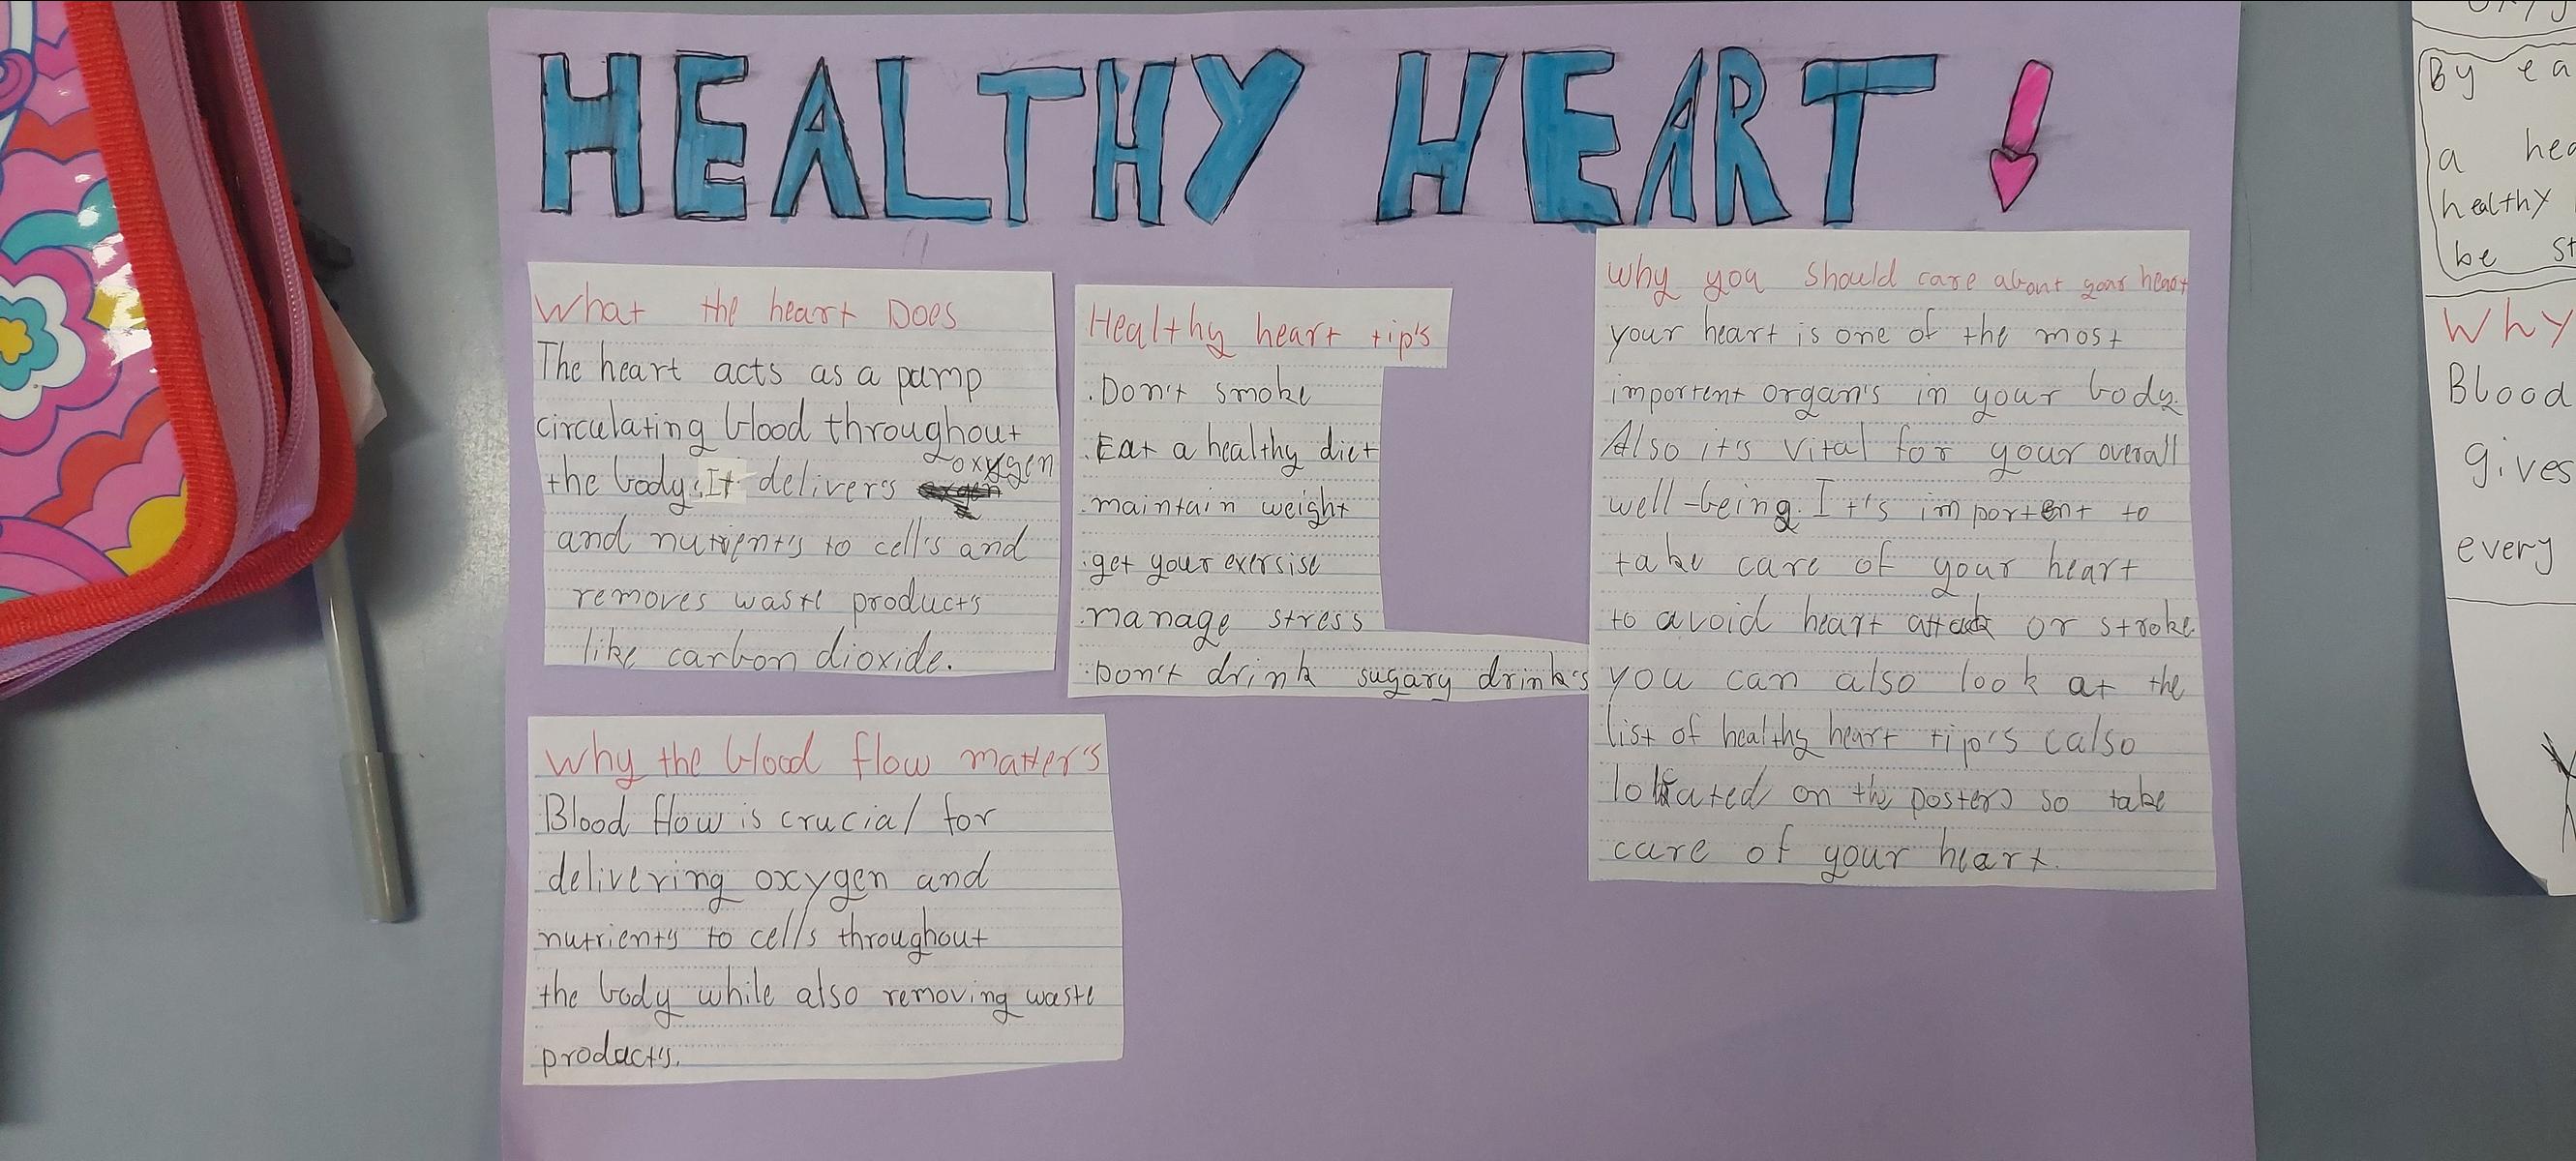 HEALTHY HEART!
What the heart Does
The heart acts as a pump
circulating blood throughout
the body. It delivers oxygen
and nutrient's to cell's and
removes waste products
like carbon dioxide.
Healthy heart tip's
.Don't smoke
.Eat a healthy diet
.maintain weight
.get your exersise
.manage stress
.Don't drink sugary drink's
why you should care about your heart
your heart is one of the most
importent organ's in your body.
Also it's vital for your overall
well-being. It's importent to
take care of your heart
to avoid heart attack or stroke.
you can also look at the
list of healthy heart tip's (also
located on the poster) so take
care of your heart.
why the blood flow matter's
Blood flow is crucial for
delivering oxygen and
nutrients to cells throughout
the body while also removing waste
product's.
By ea
a hea
healthy
be st
Why
Blood
gives
every